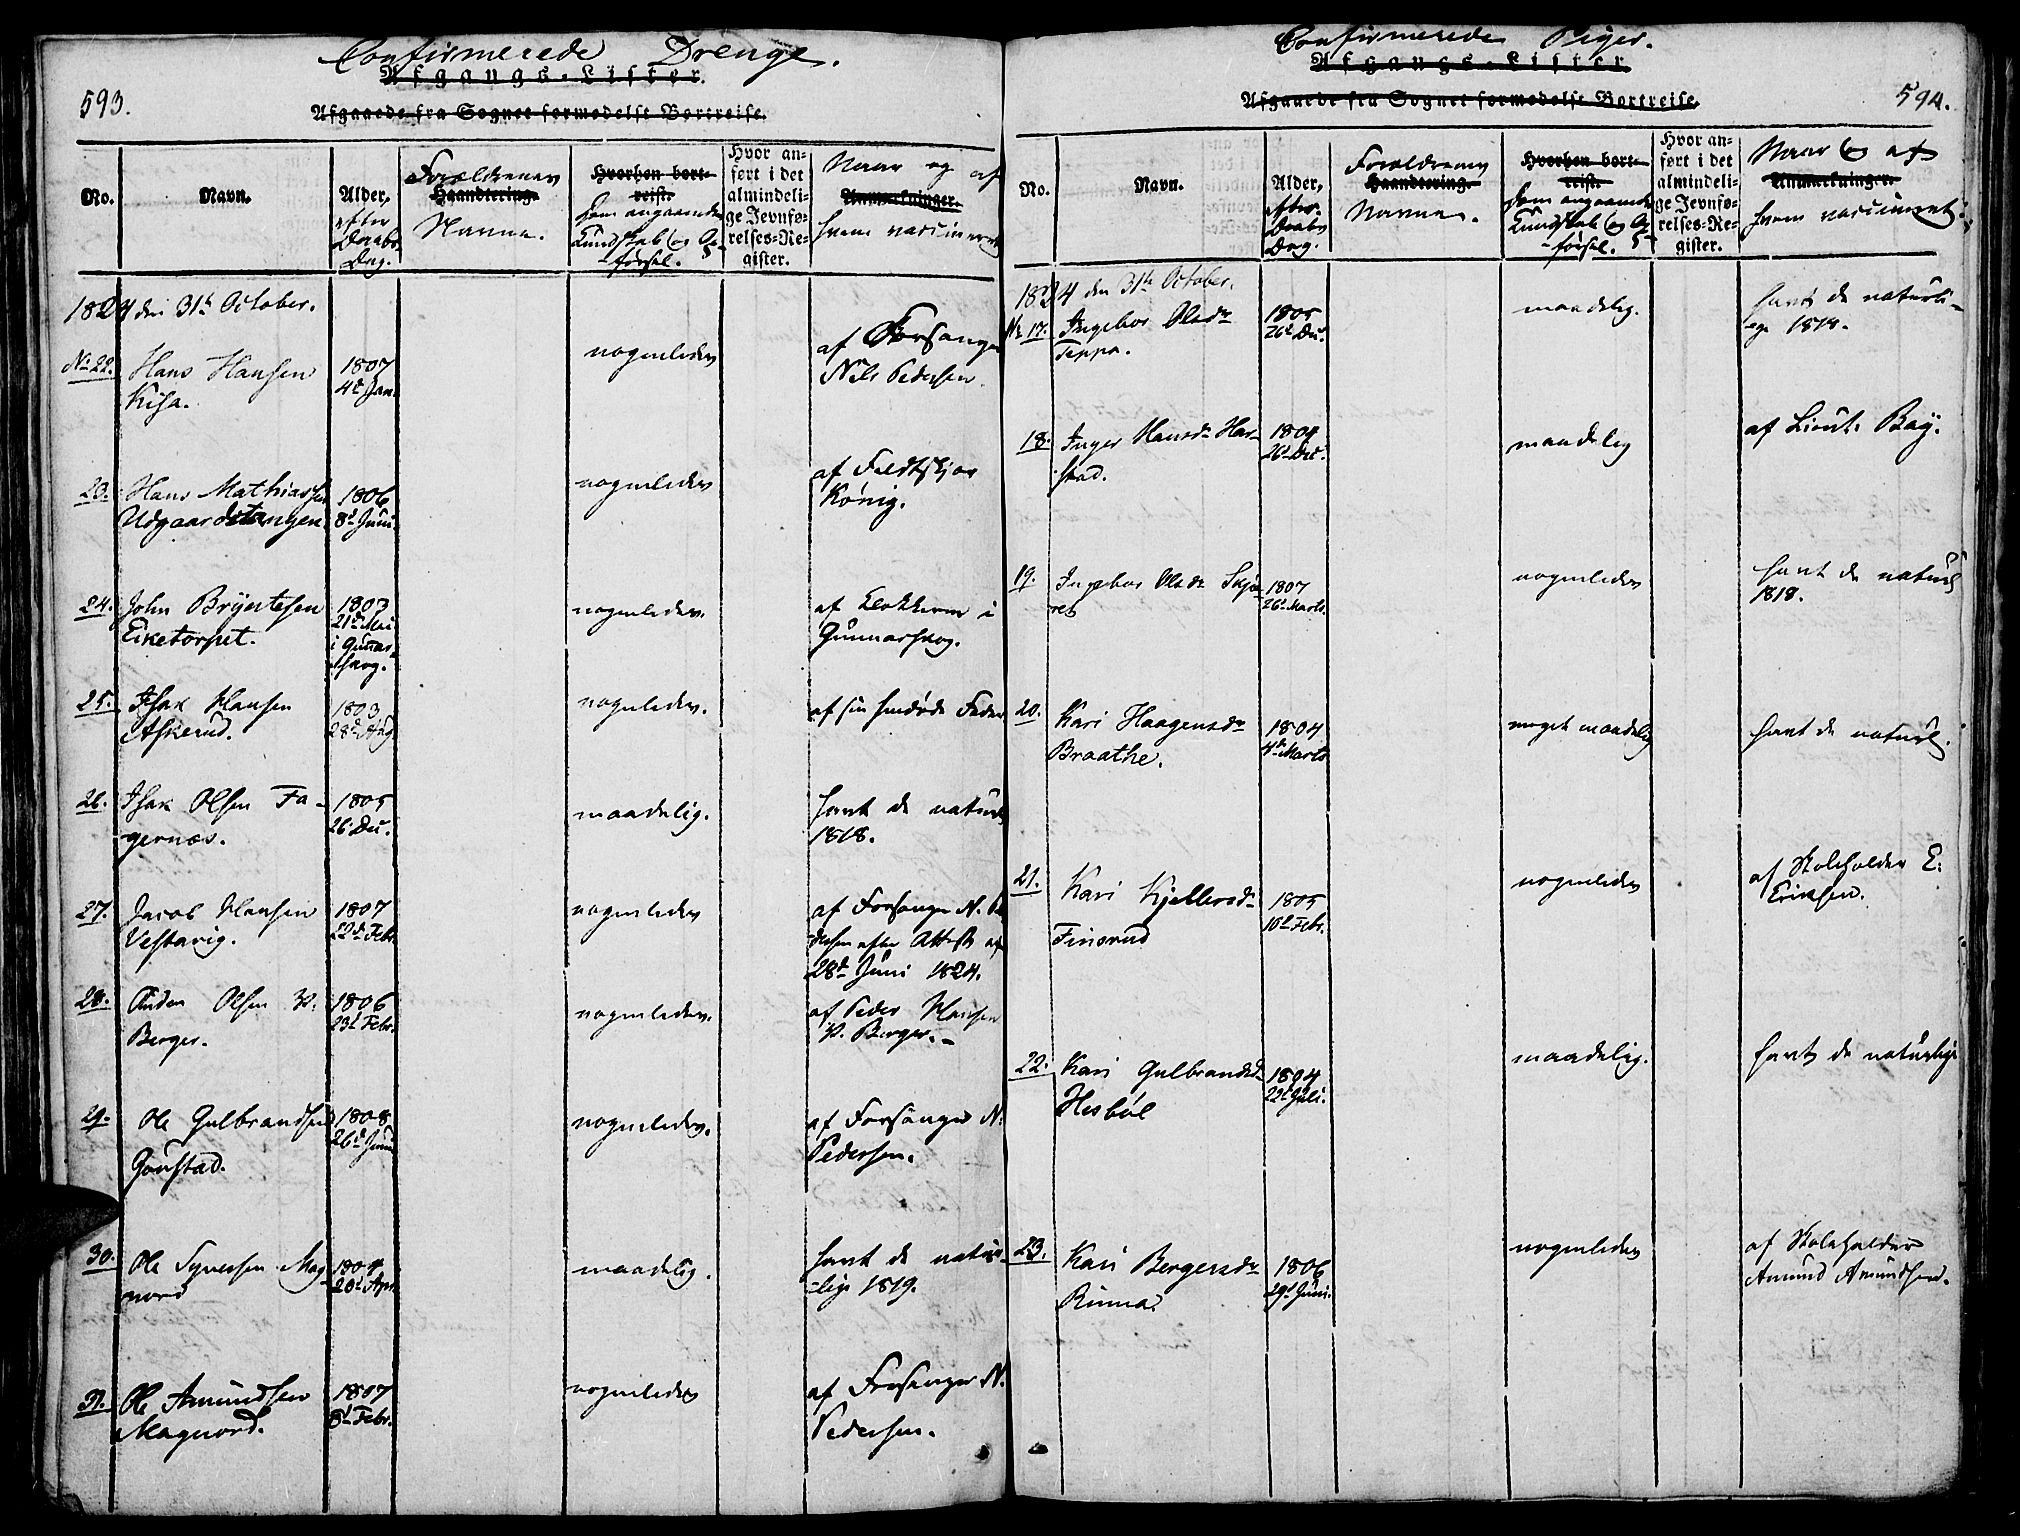 Confirmerede Drenge.
Afgangs-Lister.
593.
Afgaaede fra Sognet formedelst Bortreise.
No.
Navn.
Alder,
efter
Daabs
Dag.
Forældrenes
Haandtering.
Navne.
Hvorhen bort-
reist.
Dom angaaende
Kundskab og Op-
førsel.
Hvor an-
ført i det
almindeli-
ge Jevnfø-
relses-Re-
gister.
Naar og af
Anmærkninger.
hvem vaccineret
1824 den 31te October.
No 22. Hans Hansen
Kisa.
1807
4de Jan.
nogenledes
af Forsanger
Nils Pedersen.
23. Hans Mathiassen
Udgaardstangen
1806
8de Juni
nogenledes
af Feldtskjær
König.
24. John Bryntesen
Eiketorpet.
1803
21de Mai
i Gunnar-
skog.
nogenledes.
af Klokkeren i
Gunnarskog.
25. Isak Hansen
Askerud.
1803
28de Aug.
nogenledes.
af sin hendøde Fader
26. Isak Olsen Fa-
gernæs.
1805
26 Dec.
maadelig.
havt de naturl.
1818.
27. Jacob Hansen
Vestavig.
1807
22de Febr.
nogenledes
af Forsanger N. Pe
dersen efter Attest af
28de Juni 1824.
28. Anden Olsen V.
Berger.
1806
23d Febr.
nogenledes.
af Peder Hansen
V. Berger.-
29. Ole Gulbrandsen
Goustad.
1808
26de Juni
nogenledes.
af Forsanger N.
Pedersen.
30. Ole Syversen Mag-
nord
1804
20d Apr.
maadelig.
havt de natur-
lige 1819.
31. Ole Amundsen
Magnord.
1807
8d Febr.
nogenledes
af Forsanger N.
Pedersen.
Confirmerede Piger.
Afgangs-Lister.
594.
Afgaaede fra Sognet formedelst Bortreise.
No.
Navn.
Alder,
efter
Daabs
Dag.
Forældrenes
Haandtering.
Navne.
Hvorhen bort-
reist.
Dom angaaende
Kundskab og Op-
førsel.
Hvor an-
ført i det
almindeli-
ge Jevnfø-
relses-Re-
gister.
Naar og af
Anmærkninger.
hvem vaccineret.
1824 den 31te October.
No 17. Ingebor Olsdr
Teppa.
1805
26d Dec.
maadelig.
havt de naturli-
ge 1818.
18. Inger Hansdr Har-
stad.
1804
26d Dec.
maadelig
af Lieut. Bay.
19. Ingebor Olsdr Skjæ-
ret
1807
26d Marts
nogenledes
havt de naturl
1818.
20. Kari Haagensdr
Braathe.
1804
4de Marts
noget maadelig
havt de naturl.
21. Kari Kjellersdr
Finsrud
1805
10d Febr.
nogenledes
af Skoleholder E.
Eriksen.
22. Kari Gulbrandsd
Hesbøl
1804
22d Juli.
maadelig.
havt de naturlige
23. Kari Bergersdr
Rinna.
1806
29d Juni.
nogenledes
af Skoleholder
Amund Amundsen.